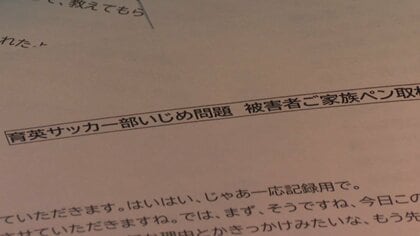 、教えてもら
れた。
育英サッカー部いじめ問題 被害者ご家族ペン取材
ていただきます。はいはい、じゃあ一応記録用で。
させていただきますね。では、まず、そうですね、今日この
理由とかきっかけみたいな、もう先